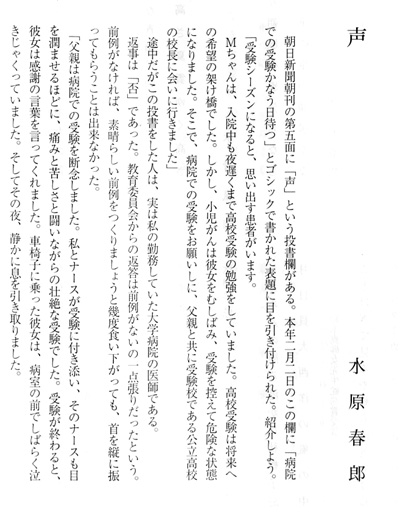 声
水原春郎
朝日新聞朝刊の第五面に「声」という投書欄がある。本年二月二日のこの欄に「病院
での受験かなう日待つ」とゴシックで書かれた表題に目を引き付けられた。紹介しよう。
「受験シーズンになると、思い出す患者がいます。
Ｍちゃんは、入院中も夜遅くまで高校受験の勉強をしていました。高校受験は将来へ
の希望の架け橋でした。しかし、小児がんは彼女をむしばみ、受験を控えて危険な状態
になりました。そこで、病院での受験をお願いしに、父親と共に受験校である公立高校
の校長に会いに行きました」
途中だがこの投書をした人は、実は私の勤務していた大学病院の医師である。
返事は「否」であった。教育委員会からの返答は前例がないの一点張りだったという。
前例がなければ、素晴らしい前例をつくりましょうと幾度食い下がっても、首を縦に振
ってもらうことは出来なかった。
「父親は病院での受験を断念しました。私とナースが受験に付き添い、そのナースも目
を潤ませるほどに、痛みと苦しさと闘いながらの壮絶な受験でした。受験が終わると、
彼女は感謝の言葉を言ってくれました。車椅子に乗った彼女は、病室の前でしばらく泣
きじゃくっていました。そしてその夜、静かに息を引き取りました。